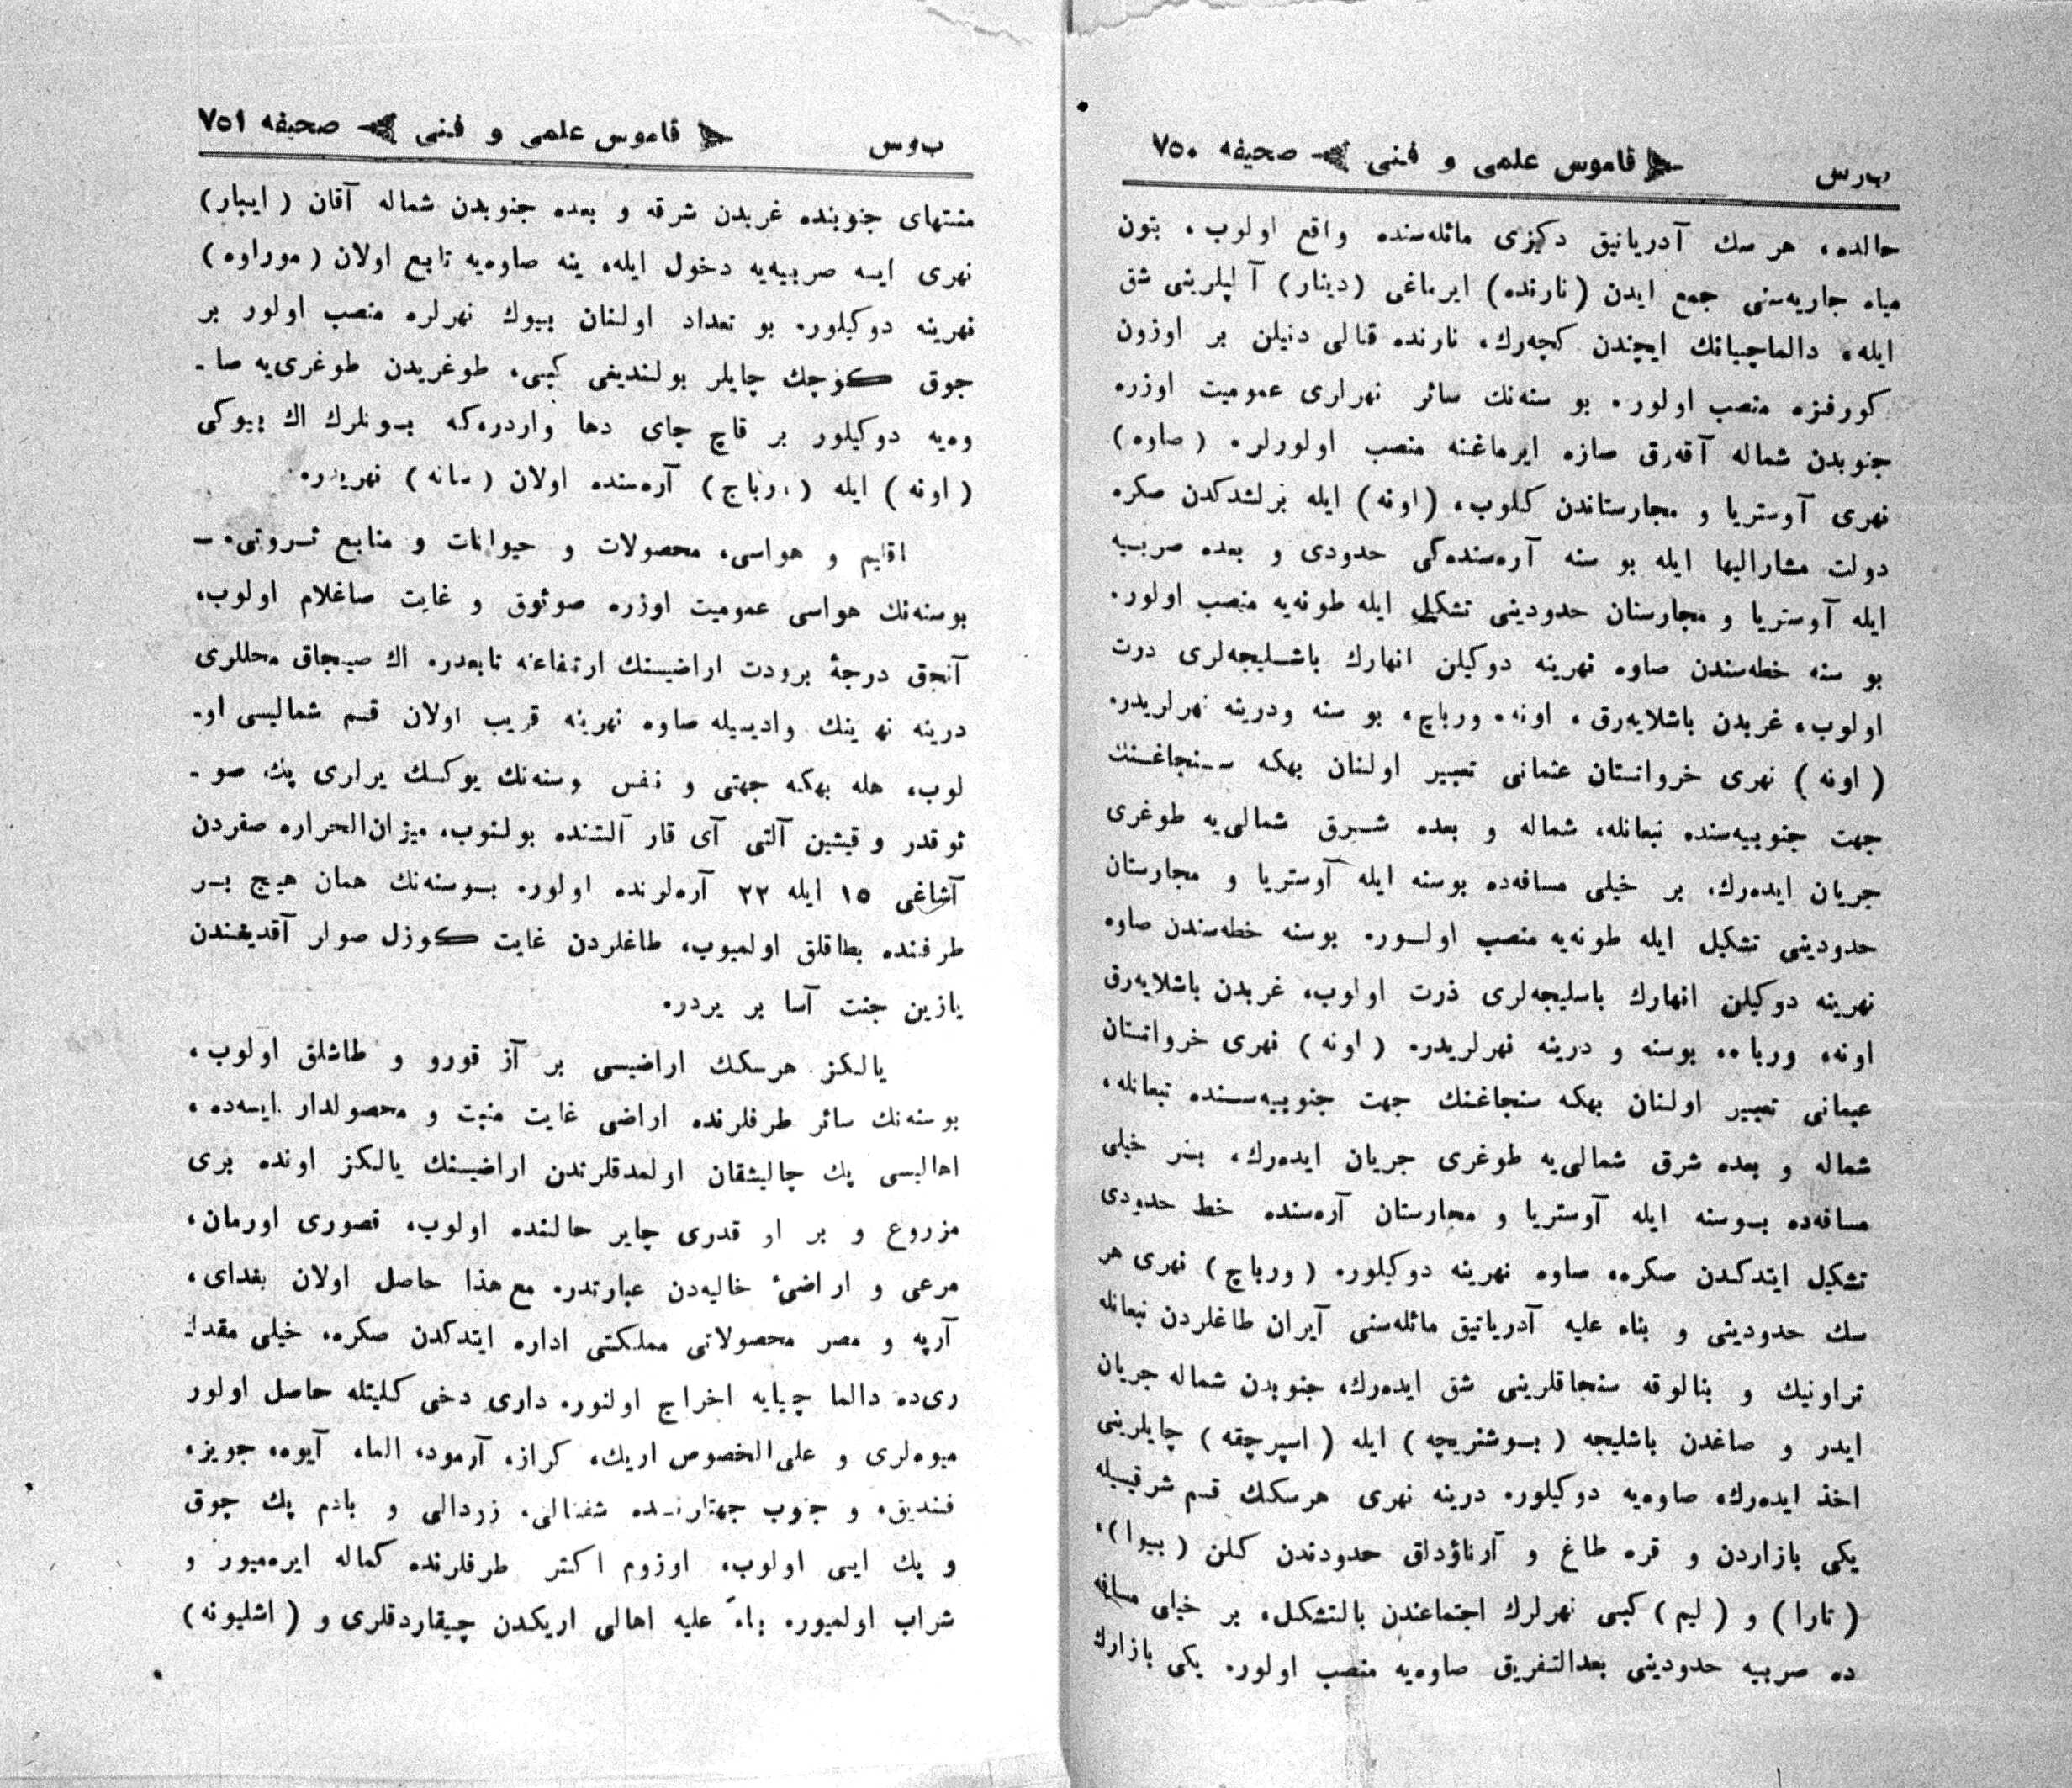 بوس قاموس علمی و فنی صحیفه ٧٥٠
حالده، هرسك آدریاتیق دكزی مائله‌سنده واقع اولوب، بتون
میاه جاریه‌سنی جمع ایدن (نارنده) ایرماغی (دینار) آلپلرینی شق
ایله، دالماچیانك ایچندن كچه‌رك، نارنده قنالی دنیلن بر اوزون
كورفزه منصب اولور. بو سنه‌نك سائر نهراری عمومیت اوزره
جنوبدن شماله آقه‌رق صازه ایرماغنه منصب اولورلر. (صاوه)
نهری آوستریا و مجارستاندن كلوب، (اونه) ایله برلشدكدن صكره
دولت مشارالیها ایله بو سنه آره‌سنده‌كی حدودی و بعده صربیه
ایله آوستریا و مجارستان حدودینی تشكیل ایله طونه‌یه منصب اولور.
بو سنه خطه‌سندن صاوه نهرینه دوكیلن انهارك باشلیجه‌لری درت
اولوب، غربدن باشلایه‌رق، اونه، ورباچ، بو سنه ودرینه نهرلریدر.
(اونه) نهری خرواتستان عثمانی تعبیر اولنان بهكه سنجاغنك
جهت جنوبیه‌سنده نبعانله، شماله و بعده شرق شمالی‌یه طوغری
جریان ایده‌رك، بر خیلی مسافه‌ده بوسنه ایله آوستریا و مجارستان
حدودینی تشكیل ایله طونه‌یه منصب اولور. بوسنه خطه‌سندن صاوه
نهرینه دوكیلن انهارك باسلیجه‌لری ذرت اولوب، غربدن باشلایه‌رق
اونه، وربا.. بوسنه و درینه نهرلریدر. (اونه) نهری خرواتستان
عیمانی تعبیر اولنان بهكه سنجاغنك جهت جنوبیه‌سنده نبعانله،
شماله و بعده شرق شمالی‌یه طوغری جریان ایده‌رك، بر خیلی
مسافه‌ده بوسنه ایله آوستریا و مجارستان آره‌سنده خط حدودی
تشكیل ایتدكدن صكره، صاوه نهرینه دوكیلور. (ورباچ) نهری هر
سك حدودینی و بناء علیه آدریاتیق مائله‌سنی آیران طاغلردن نبعانله
تراونیك و بنالوقه سنجاقلرینی شق ایده‌رك، جنوبدن شماله جریان
ایدر و صاغدن باشلیجه (بوشنریچه) ایله (اسپرچقه) چایلرینی
اخذ ایده‌رك، صاوه‌یه دوكیلور. درینه نهری هرسكك قسم شرقیسیله
یكی بازاردن و قره طاغ و آرناؤدلق حدودندن كلن (بیوا)،
(تارا) و (لیم) كبی نهرلرك اجتماعندن بالتشكل، بر خیلی مسافه
ده صربیه حدودینی بعدالتفریق صاوه‌یه منصب اولور. یكی بازارك
بوس قاموس علمی و فنی صحیفه ٧٥١
منتهای جنوبنده غربدن شرقه و بعده جنوبدن شماله آقان (ایبار)
نهری ایسه صربیه‌یه دخول ایله، ینه صاوه‌یه تابع اولان (موراوه)
نهرینه دوكیلور. بو تعداد اولنان بیوك نهرلره منصب اولور بر
جوق كوچك چایلر بولندیغی كبی، طوغریدن طوغری‌یه صا-
وه‌یه دوكیلور بر قاچ چای دها واردركه بونلرك اك بیوكی
(اونه) ایله (ورباچ) آره‌سنده اولان (سانه) نهریدر.
اقلیم و هواسی، محصولات و حیوانات و منابع ثروتی. –
بوسنه‌نك هواسی عمومیت اوزره صوئوق و غایت صاغلام اولوب،
آنجق درجهٔ برودت اراضیسنك ارتفاعنه تابعدر. اك صیجاق محللری
درینه نهرینك وادیسیله صاوه نهرینه قریب اولان قسم شمالیسی او-
لوب، هله بهكه جهتی و نفس وسنه‌نك یوكسك یرلری پك صو-
ئوقدر و قیشین آلتی آی قار آلتنده بولنوب، میزان‌الحراره صفردن
آشاغی ١٥ ایله ٢٢ آره‌لرنده اولور. بوسنه‌نك همان هیچ بر
طرفنده بطاقلق اولمیوب، طاغلردن غایت كوزل صولر آقدیغندن
یازین جنت آسا بر یردر.
یالكز هرسكك اراضیسی بر آز قورو و طاشلق اولوب،
بوسنه‌نك سائر طرفلرنده اراضی غایت منبت و محصولدار ایسه‌ده،
اهالیسی پك چالیشقان اولمدقلرندن اراضیسنك یالكز اونده بری
مزروع و بر او قدری چایر حالنده اولوب، قصوری اورمان،
مرعی و اراضیٔ خالیه‌دن عبارتدر. مع‌هذا حاصل اولان بغدای،
آرپه و مصر محصولاتی مملكتی اداره ایتدكدن صكره، خیلی مقدا-
ری‌ده دالماچیایه اخراج اولنور. داری دخی كلیتله حاصل اولور
میوه‌لری و علی‌الخصوص اریك، كراز، آرمود، الما، آیوه، جویز،
فندیق، و جنوب جهتلرنده شفتالی، زردالی و بادم پك چوق
و پك ایی اولوب، اوزوم اكثر طرفلرنده كماله ایره‌میور و
شراب اولمیور. بناءً علیه اهالی اریكدن چیقاردقلری و (اشلیونه)